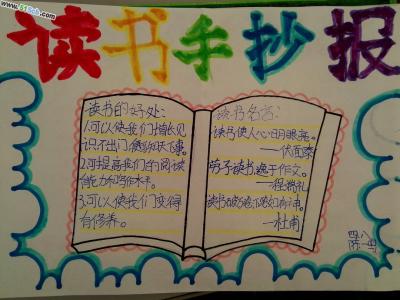 www.51Sob.com
读书手抄报
读书的好处:
1.可以使我们增长见
识不出门便知天下事。
2.可提高我们的阅读
能力和写作水平。
3.可以使我们变得
有修养。
读书名言:
读书使人心明眼亮。
——伏尔泰
劳于读书逸于作文。
——程端礼
读书破万卷下笔如有神。
——杜甫